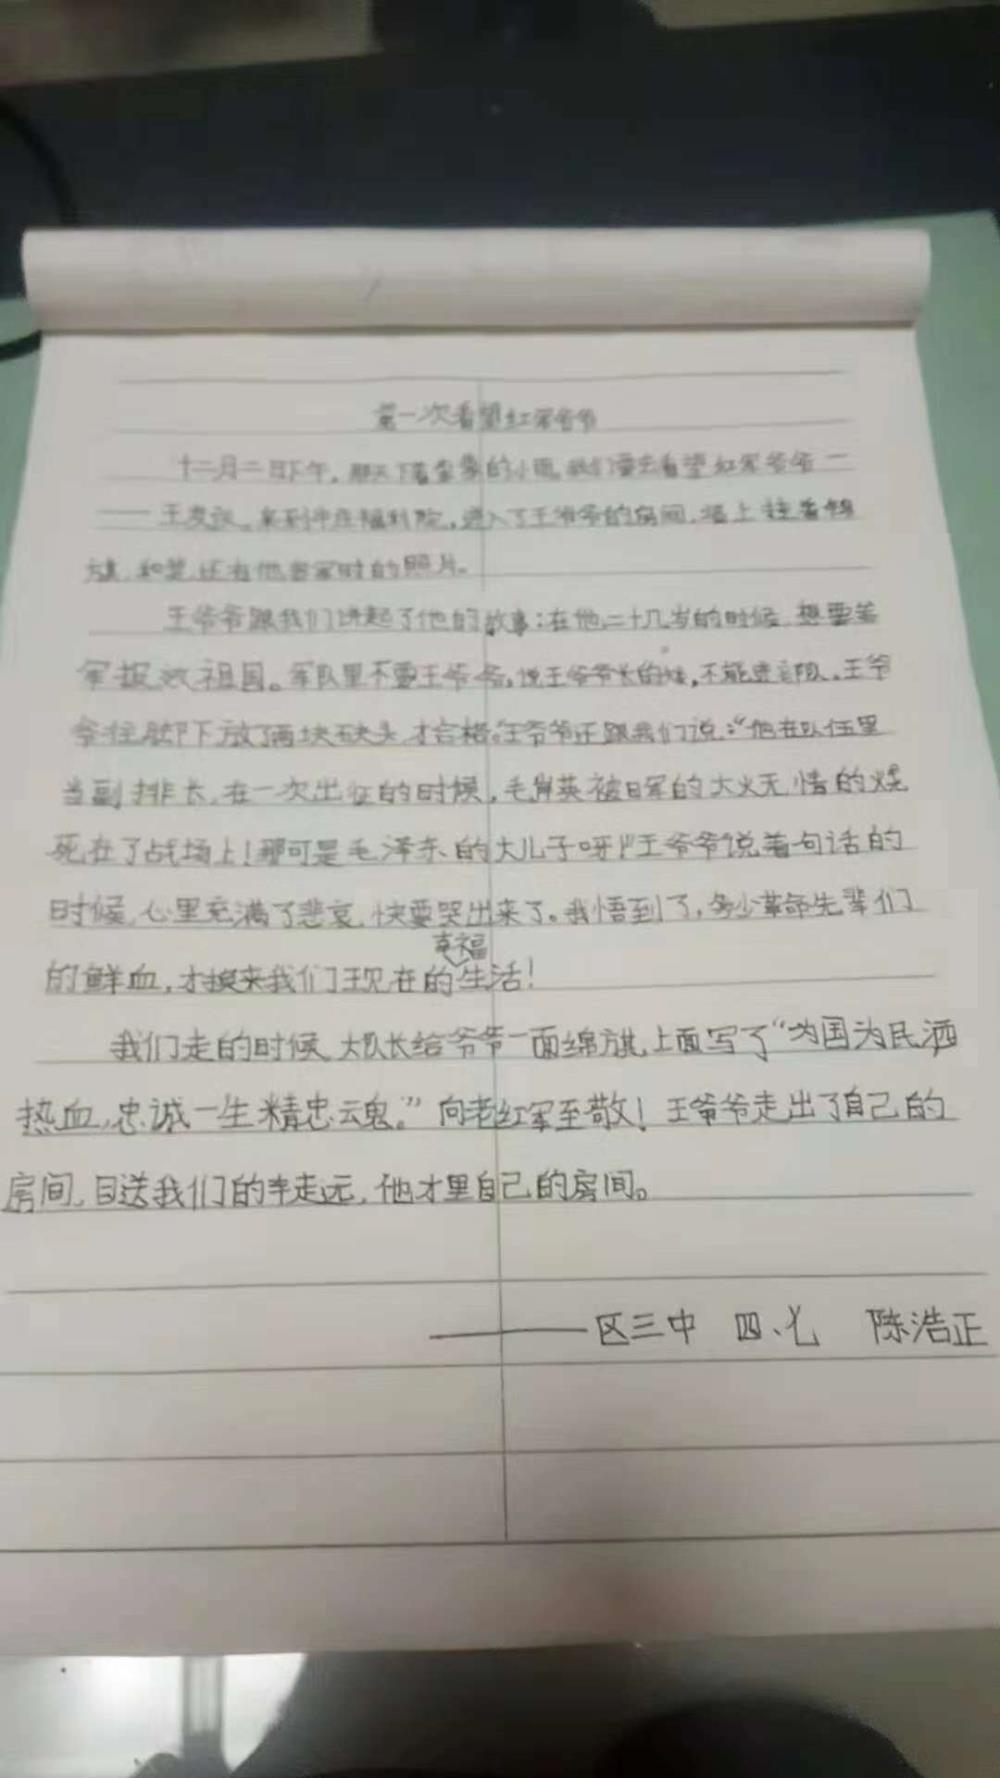 第一次看望红军爷爷
十二月二日下午，那天下着蒙蒙的小雨，我们要去看望红军爷爷一
王 来到 福利院，进入了王爷爷的房间，墙上挂着锦
旗，和 还有他当军时的照片。
王爷爷跟我们讲起了他的故事：在他二十几岁的时候，想要 
军报效祖国。军队里不要王爷爷，说王爷爷长的矮，不能进部队，王爷
爷往脚下放了两块砖头，才合格。王爷爷还跟我们说：“他在队伍里
当副排长，在一次出征的时候，毛岸英被日军的大火无情的烧
死在了战场上！那可是毛泽东的大儿子呀！”王爷爷说着句话的
时候，心里充满了悲哀，快要哭出来了。我悟到了，多少革命先辈们
的鲜血，才换来我们现在的幸福生活！
我们走的时候，大队长给爷爷一面绵旗，上面写了“为国为民洒
热血，忠诚一生精忠云鬼。”向老红军至敬！王爷爷走出了自己的
房间，目送我们的车走远，他才里自己的房间。
——区三中 四、七 陈浩正